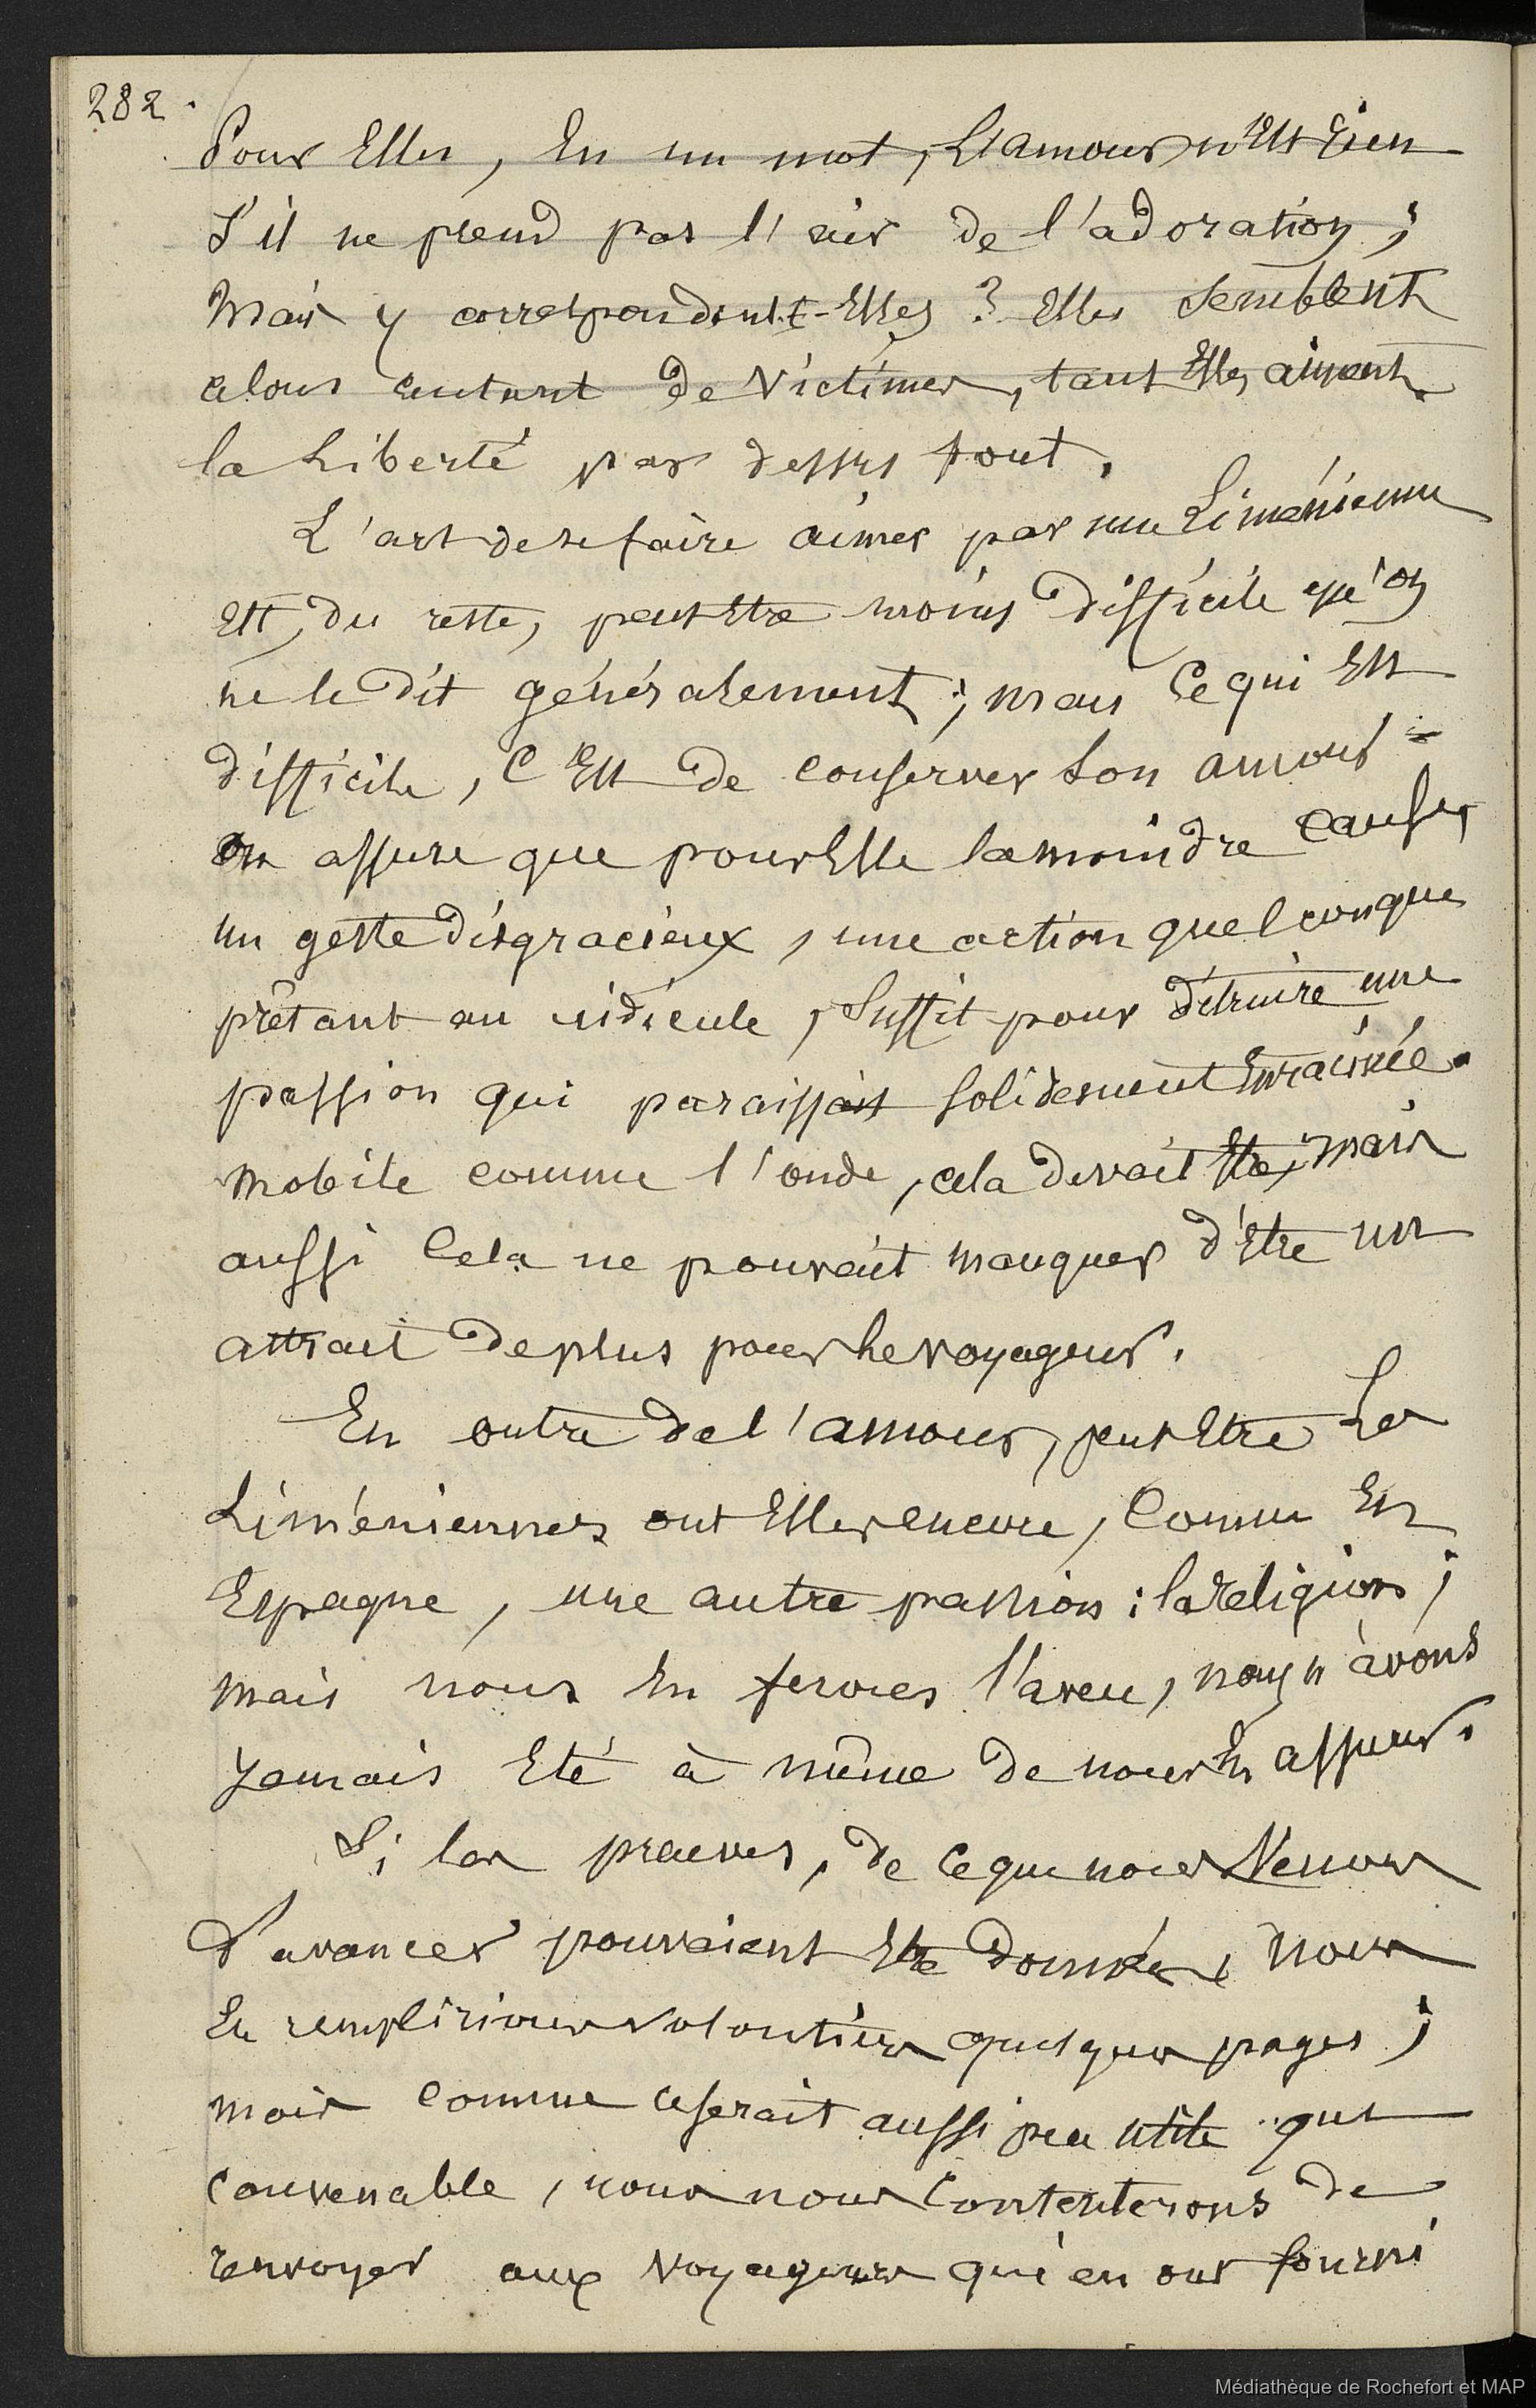 282.
Pour Elles, En un mot, L'amour n'Est rien
S'il ne prend pas l'air de l'adoration ;
Mais y correspondent-Elles ? Elles semblent
alors autant de Victimes, tant Elles aiment
la Liberté par dessus tout.
L'art de se faire aimer par une Liménienne
Est, du reste, peut Etre moins difficile qu'on
ne le dit généralement ; mais Ce qui Est
difficile, C'Est de conserver Son amour =
On assure que pour Elle la moindre Cause,
un geste disgracieux, une action quelconque
prêtant au ridicule, Suffit pour détruire une
passion qui paraissait Solidement Enracinée.
Mobile comme l'onde, cela devait Etre, mais
aussi Cela ne pouvait manquer d'Etre un
attrait de plus pour Le voyageur.
En outre de l'amour, peut Etre Les
Liméniennes ont Elles encore, Comme En
Espagne, une autre passion : la Religion ;
mais nous En ferons l'aveu, nous n'avons
jamais Eté à même de nous En assurer.
Si les preuves, de ce que nous Venons
d'avancer pouvaient Etre données, nous
En remplirions volontiers quelques pages ;
mais Comme ce serait aussi peu utile que
convenable, nous nous Contenterons de
renvoyer aux Voyageurs qui en ont fourni
Médiathèque de Rochefort et MAP